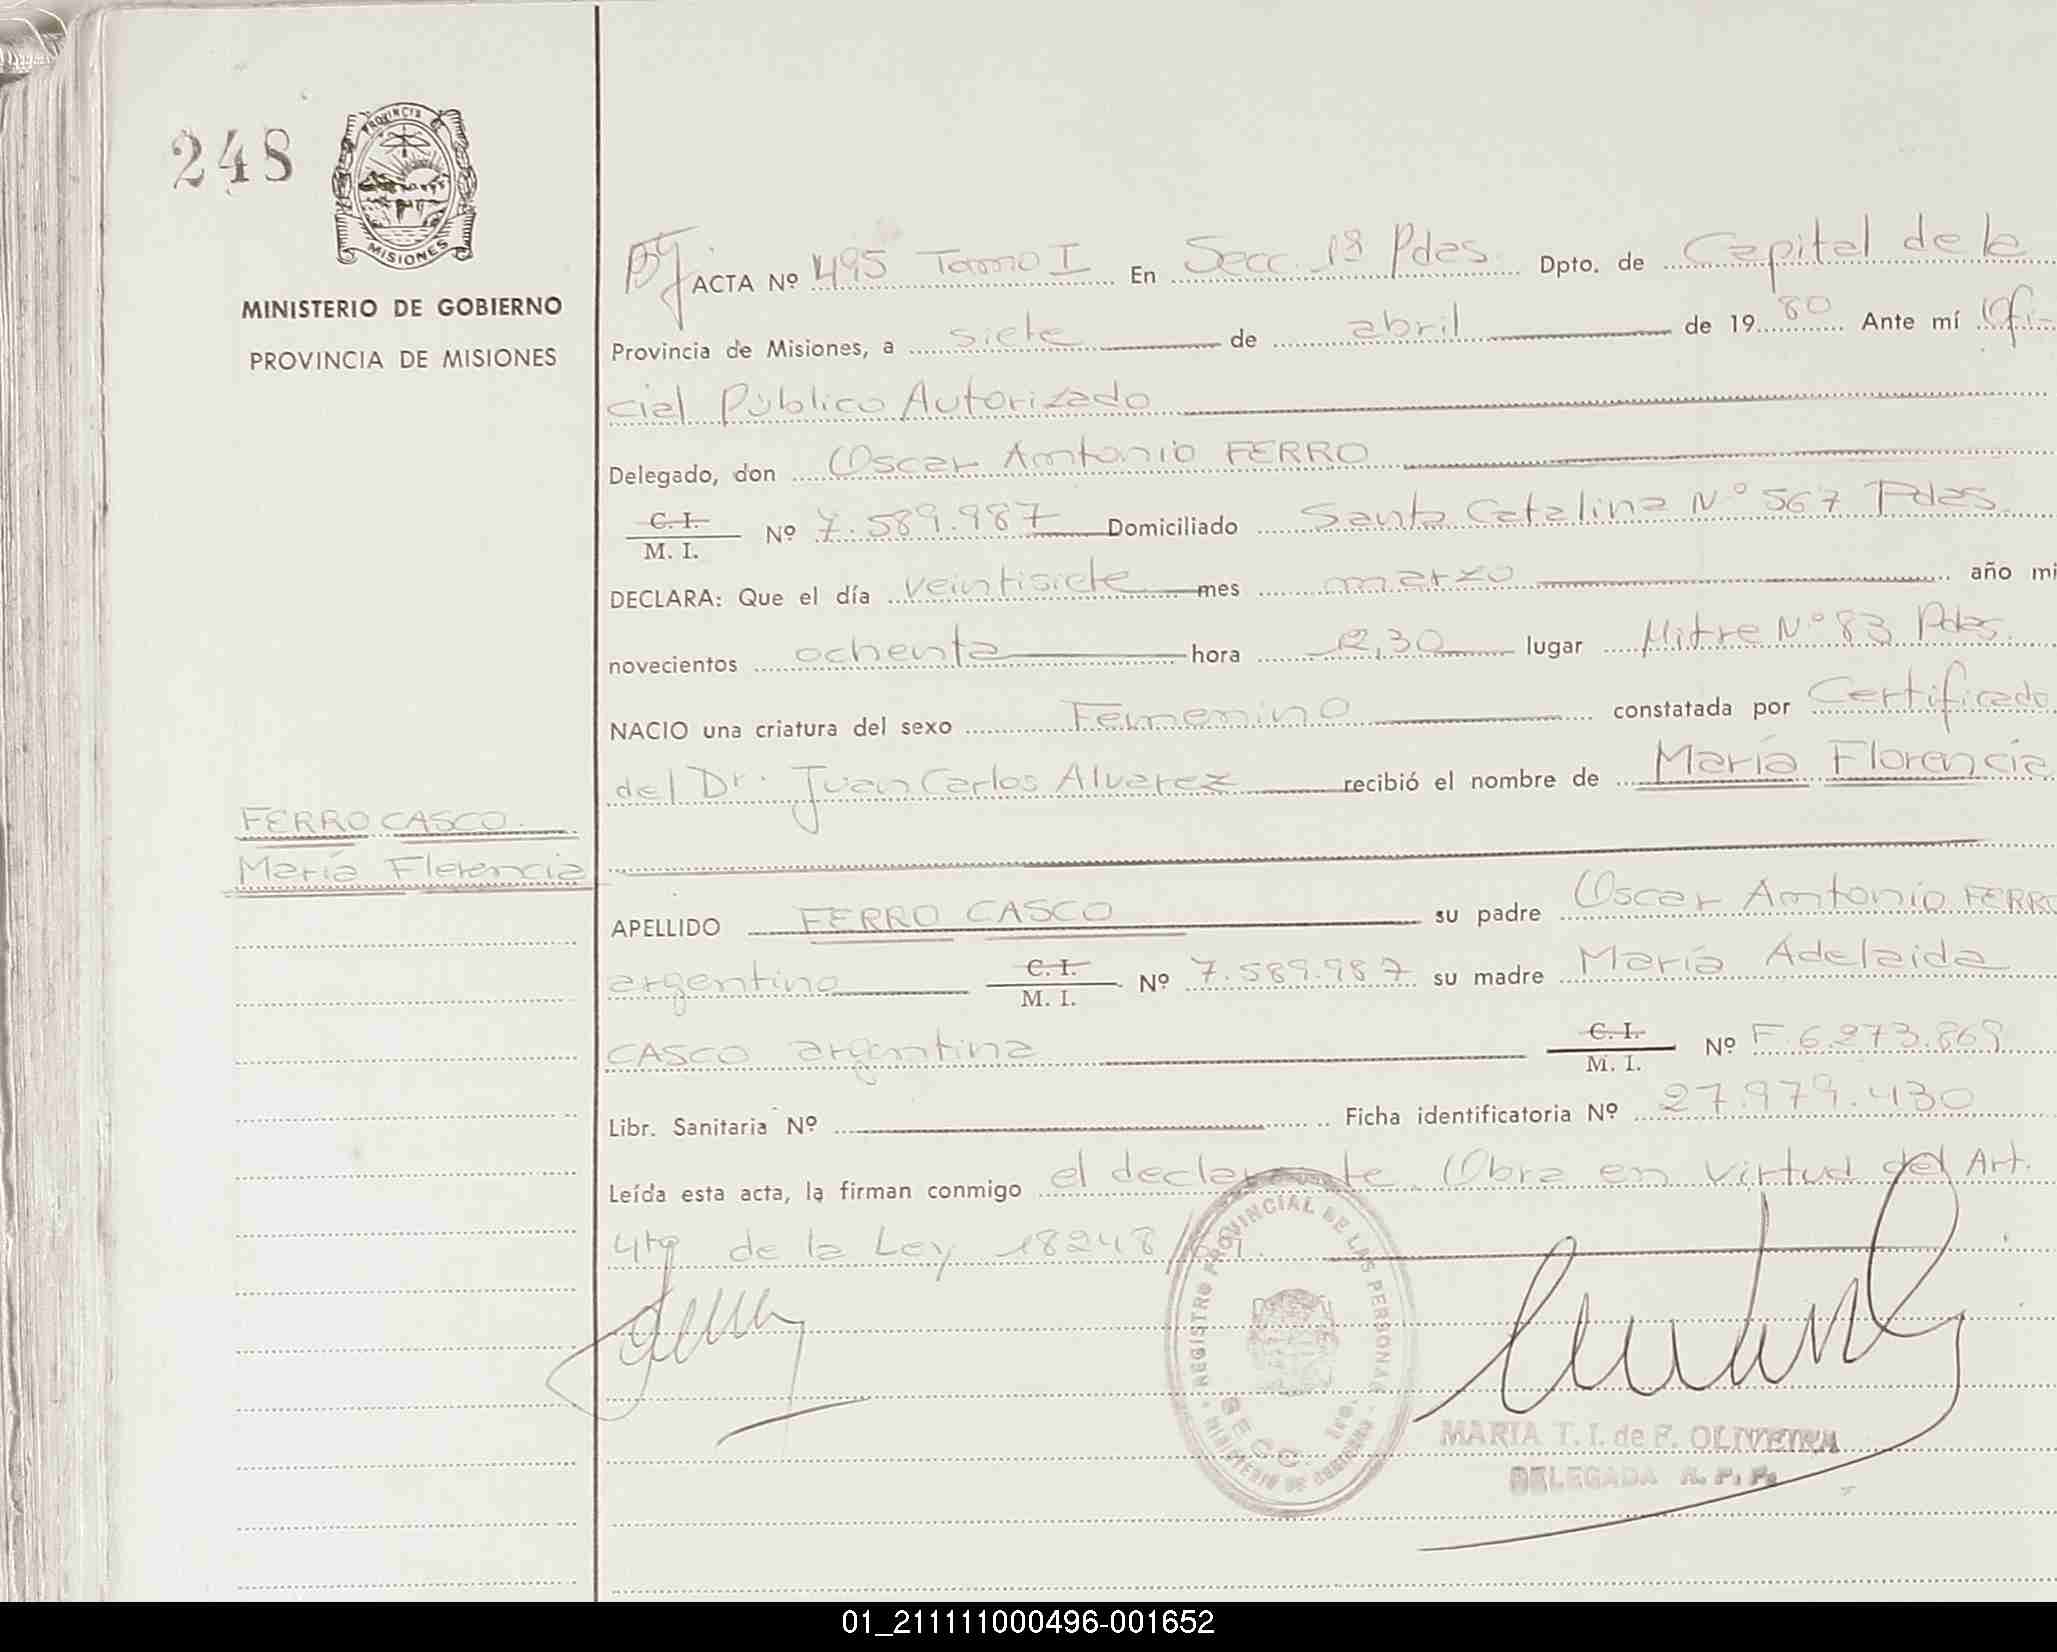 248
PROVINCIA DE
MISIONES
MINISTERIO DE GOBIERNO
PROVINCIA DE MISIONES
FERRO CASCO.
María Florencia
ACTA Nº 495 Tomo I En Secc. 1ª Pdas. Dpto. de Capital de la
Provincia de Misiones, a siete de abril de 1980 Ante mí Ofi-
cial Público Autorizado
Delegado, don Oscar Antonio FERRO
C. I. / M. I. Nº 7.589.987 Domiciliado Santa Catalina Nº 567 Pdas.
DECLARA: Que el día veintisiete mes marzo año mi
novecientos ochenta hora 2,30 lugar Mitre Nº 83 Pdas.
NACIO una criatura del sexo Femenino constatada por Certificado
del Dr. Juan Carlos Alvarez recibió el nombre de María Florencia
APELLIDO FERRO CASCO su padre Oscar Antonio FERRO
argentino C. I. / M. I. Nº 7.589.987 su madre María Adelaida
CASCO argentina C. I. / M. I. Nº F. 6.273.869
Libr. Sanitaria Nº Ficha identificatoria Nº 27.979.430
Leída esta acta, la firman conmigo el declarante. Obra en virtud del Art.
4to de la Ley 18248
REGISTRO PROVINCIAL DE LAS PERSONAS
SECC. 1ra.
MINISTERIO DE GOBIERNO
MARIA T. I. de F. OLIVEIRA
DELEGADA R. P. P.
01_211111000496-001652